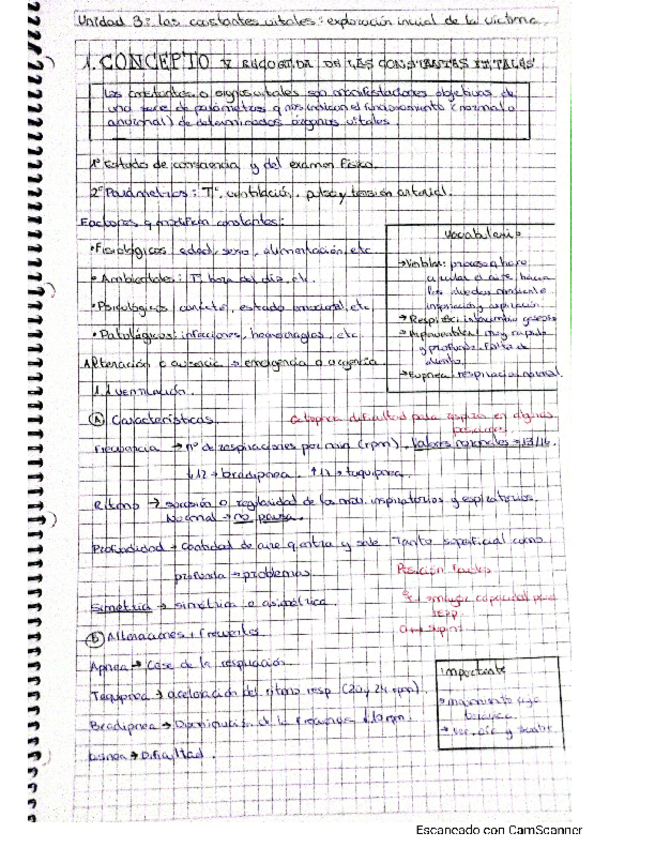 Unidad 3: las constantes vitales: exploración inicial de la víctima.
1. CONCEPTO Y RECOGIDA DE LAS CONSTANTES VITALES.
Las constantes o signos vitales son manifestaciones objetivas de
una serie de parámetros q nos indican el funcionamiento (normal o
anormal) de determinados órganos vitales
1º Estado de consciencia y del examen físico.
2º Parámetros: Tª, ventilación, pulso y tensión arterial.
Factores q modifican constantes:
• Fisiológicos: edad, sexo, alimentación, etc
• Ambientales: Tª, hora del día, etc.
• Psicológicos: carácter, estado emocional, etc
• Patológicos: infecciones, hemorragias, etc.
Alteración o ausencia → emergencia o urgencia
Vocabulario
→ Eupnea: respiración normal.
1.1 VENTILACIÓN.
(A) Características.
dificultad para respirar en algunas
posiciones.
Frecuencia → nº de respiraciones por min (rpm). Valores normales →
↓12 → bradipnea. ↑ → taquipnea.
Ritmo → sucesión o regularidad de los mov. inspiratorios y espiratorios.
Normal → no pausa.
Profundidad → Cantidad de aire q entra y sale. Tanto superficial como
profunda → problemas.
Posición
Simetría → simétrica o asimétrica.
→ mayor capacidad para
resp
(b) Alteraciones + frecuentes
Apnea → Cese de la respiración.
Taquipnea → aceleración del ritmo resp (20 y 24 rpm).
Bradipnea → Disminución de la frecuencia ↓10 rpm.
Disnea → Dificultad.
Importante
→ movimiento caja
torácica.
→ ver, oír y sentir.
Escaneado con CamScanner